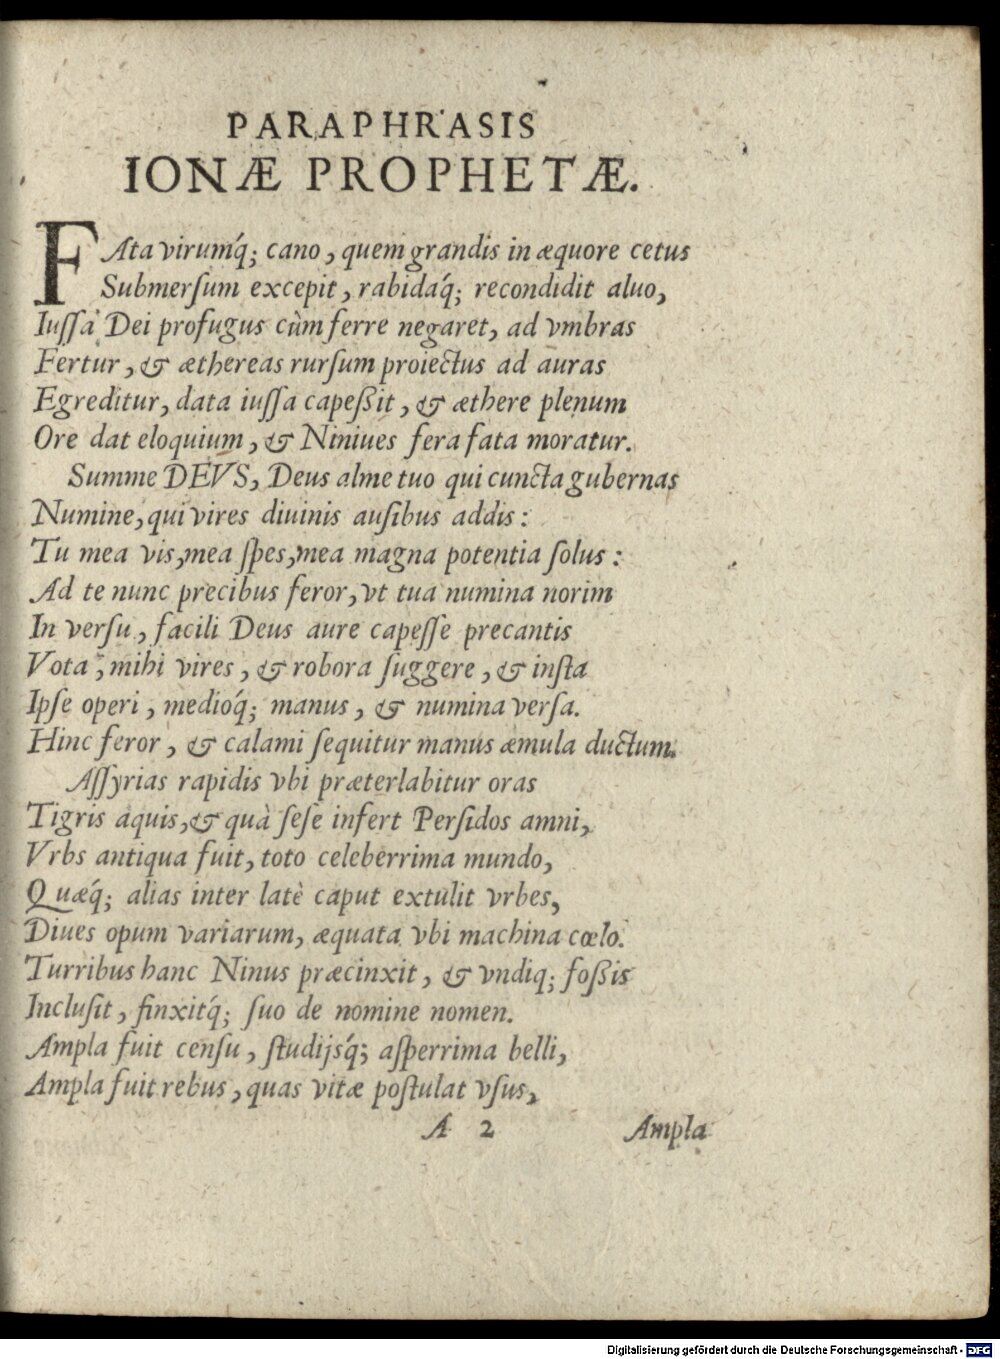 PARAPHRASIS
IONÆ PROPHETÆ.
FAta virumq́; cano, quem grandis in æquore cetus
Submerſum excepit, rabidaq́; recondidit aluo,
Iuſſa Dei profugus cùm ferre negaret, ad vmbras
Fertur, & æthereas rurſum proiectus ad auras
Egreditur, data iuſſa capeßit, & æthere plenum
Ore dat eloquium, & Niniues fera fata moratur.
Summe DEVS, Deus alme tuo qui cuncta gubernas
Numine, qui vires diuinis auſibus addis:
Tu mea vis, mea ſpes, mea magna potentia ſolus:
Ad te nunc precibus feror, vt tua numina norim
In verſu, facili Deus aure capeſſe precantis
Vota, mihi vires, & robora ſuggere, & inſta
Ipſe operi, medioq́; manus, & numina verſa.
Hinc feror, & calami ſequitur manus æmula ductum.
Aſſyrias rapidis vbi præterlabitur oras
Tigris aquis, & quà ſeſe infert Perſidos amni,
Vrbs antiqua fuit, toto celeberrima mundo,
Quæq́; alias inter latè caput extulit vrbes,
Diues opum variarum, æquata vbi machina cœlo.
Turribus hanc Ninus præcinxit, & vndiq; foßis
Incluſit, finxitq́; ſuo de nomine nomen.
Ampla fuit cenſu, ſtudijsq́; aſperrima belli,
Ampla fuit rebus, quas vitæ poſtulat vſus,
A 2 Ampla
Digitalisierung gefördert durch die Deutsche Forschungsgemeinschaft - DFG